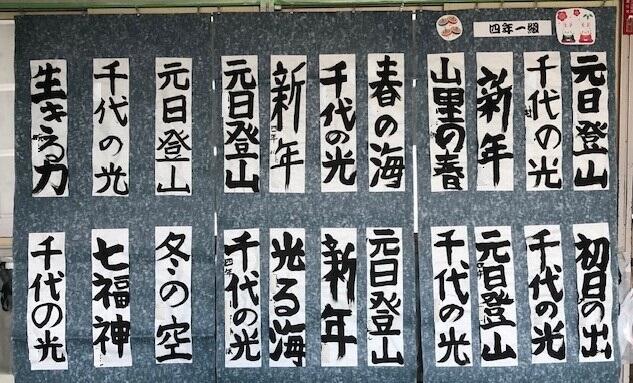 四年一組
元日登山
千代の光
新年
山里の春
春の海
千代の光
新年
元日登山
元日登山
千代の光
生きる力
初日の出
千代の光
元日登山
千代の光
元日登山
新年
光る海
千代の光
冬の空
七福神
千代の光